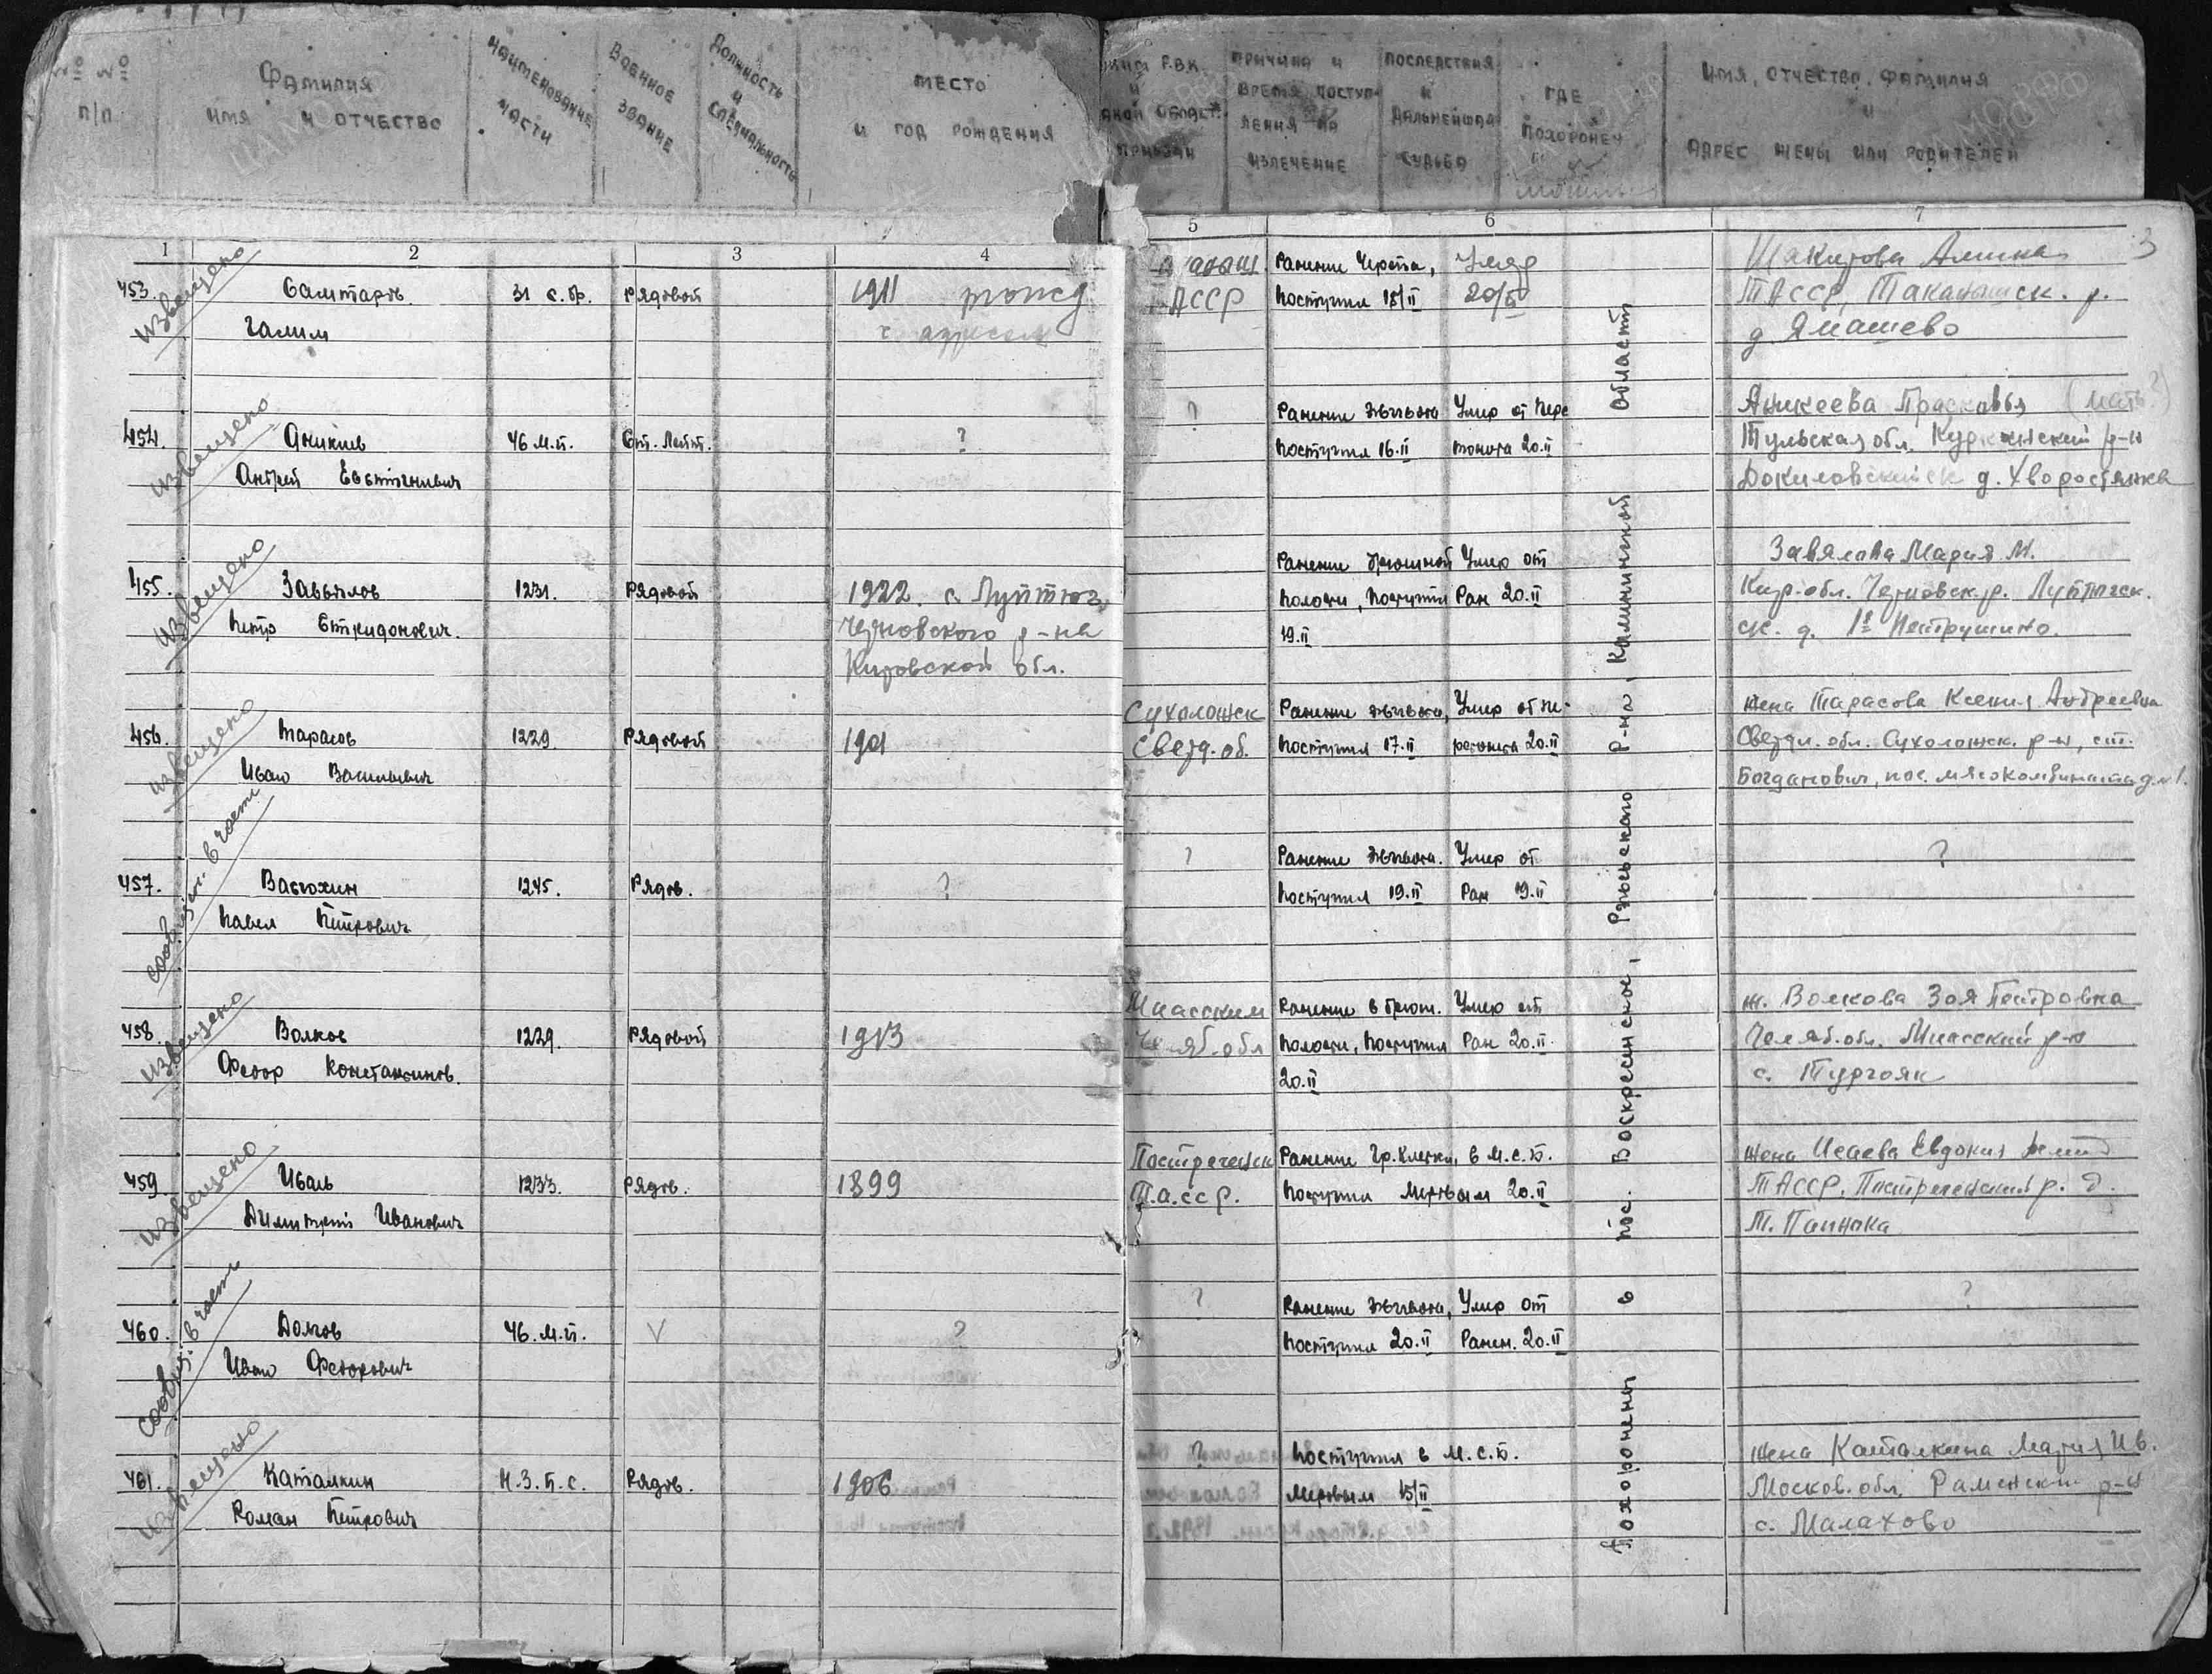 №№ п/п
Фамилия имя и отчество
Наименование части
Военное звание
Должность и специальность
Место и год рождения
Р.В.К. и
Причина и время поступления на излечение
Последствия и дальнейшая судьба
Где похоронен
Имя, отчество, фамилия и адрес жены или родителей
1 2 3 4 5 6 7
3
извещено
453. 31 с.бр. Рядовой 1911
Галим
АССР
Ранение черепа, Умер
поступил 18/II 20/II
Шакирова
ТАССР, Таканышск. р.
д. Ямашево
извещено
454. Аникиев 46 м.п. Ст. Лейт. ?
Андрей Евстигневич
?
Ранение живота Умер от пере
поступил 16.II тонита 20.II
Аникеева Прасковья (мать?)
Тульская обл. Куркинский р-н
д. Хворостянка
извещено
455. Завьялов 1231. Рядовой 1922. с. Луптюг
Петр Спиридонович. Черновского р-на
Кировской обл.
Ранение брюшной Умер от
полости, поступил Ран 20.II
19.II
Завялова Мария М.
Кир. обл. Черновск. р. Луптюгск.
с/с. д. 1е Петрушино.
извещено
456. Тарасов 1229 Рядовой 1901
Иван Васильевич
Сухоложск
Сверд. об.
Ранение живота, Умер от пе-
поступил 17.II ретонита 20.II
жена Тарасова Ксения Андреевна
Свердл. обл. Сухоложск. р-н, ст.
Богданович, пос. мясокомбината д. №1.
сообщен. в часть
457. 1245. Рядов. ?
Павел Петрович
?
Ранение живота. Умер от
поступил 19.II Ран 19.II
?
извещено
458. Волков 1229. Рядовой 1913
Федор Константинов.
Миасским
Челяб. обл
Ранение в брюш. Умер от
полости, поступил Ран 20.II.
20.II
ж. Волкова Зоя Петровна
Челяб. обл. Миасский р-н
с. Тургояк
извещено
459. Исаев 1233. Рядов. 1899
Димитрий Иванович
Пестречинск
Т.а.сср.
Ранение Гр. клетки, в м.с.б.
поступил мертвым 20.II
жена Исаева Евдокия
ТАССР, Пестречинский р. д.
сообщ. в часть
460. Долгов 46. м.п. V ?
Иван Федорович
?
Ранение живота, Умер от
поступил 20.II Ранен. 20.II
?
извещено
461. Каталкин Н.З.Б.С. Рядов. 1906
Роман Петрович
?
поступил в м.с.б.
мертвым 15/II
жена Каталкина Мария Ив.
Москов. обл. Раменский р-н
с. Малахово
Похоронены в пос. Воскресенское, Ржевского р-на, Калининской области